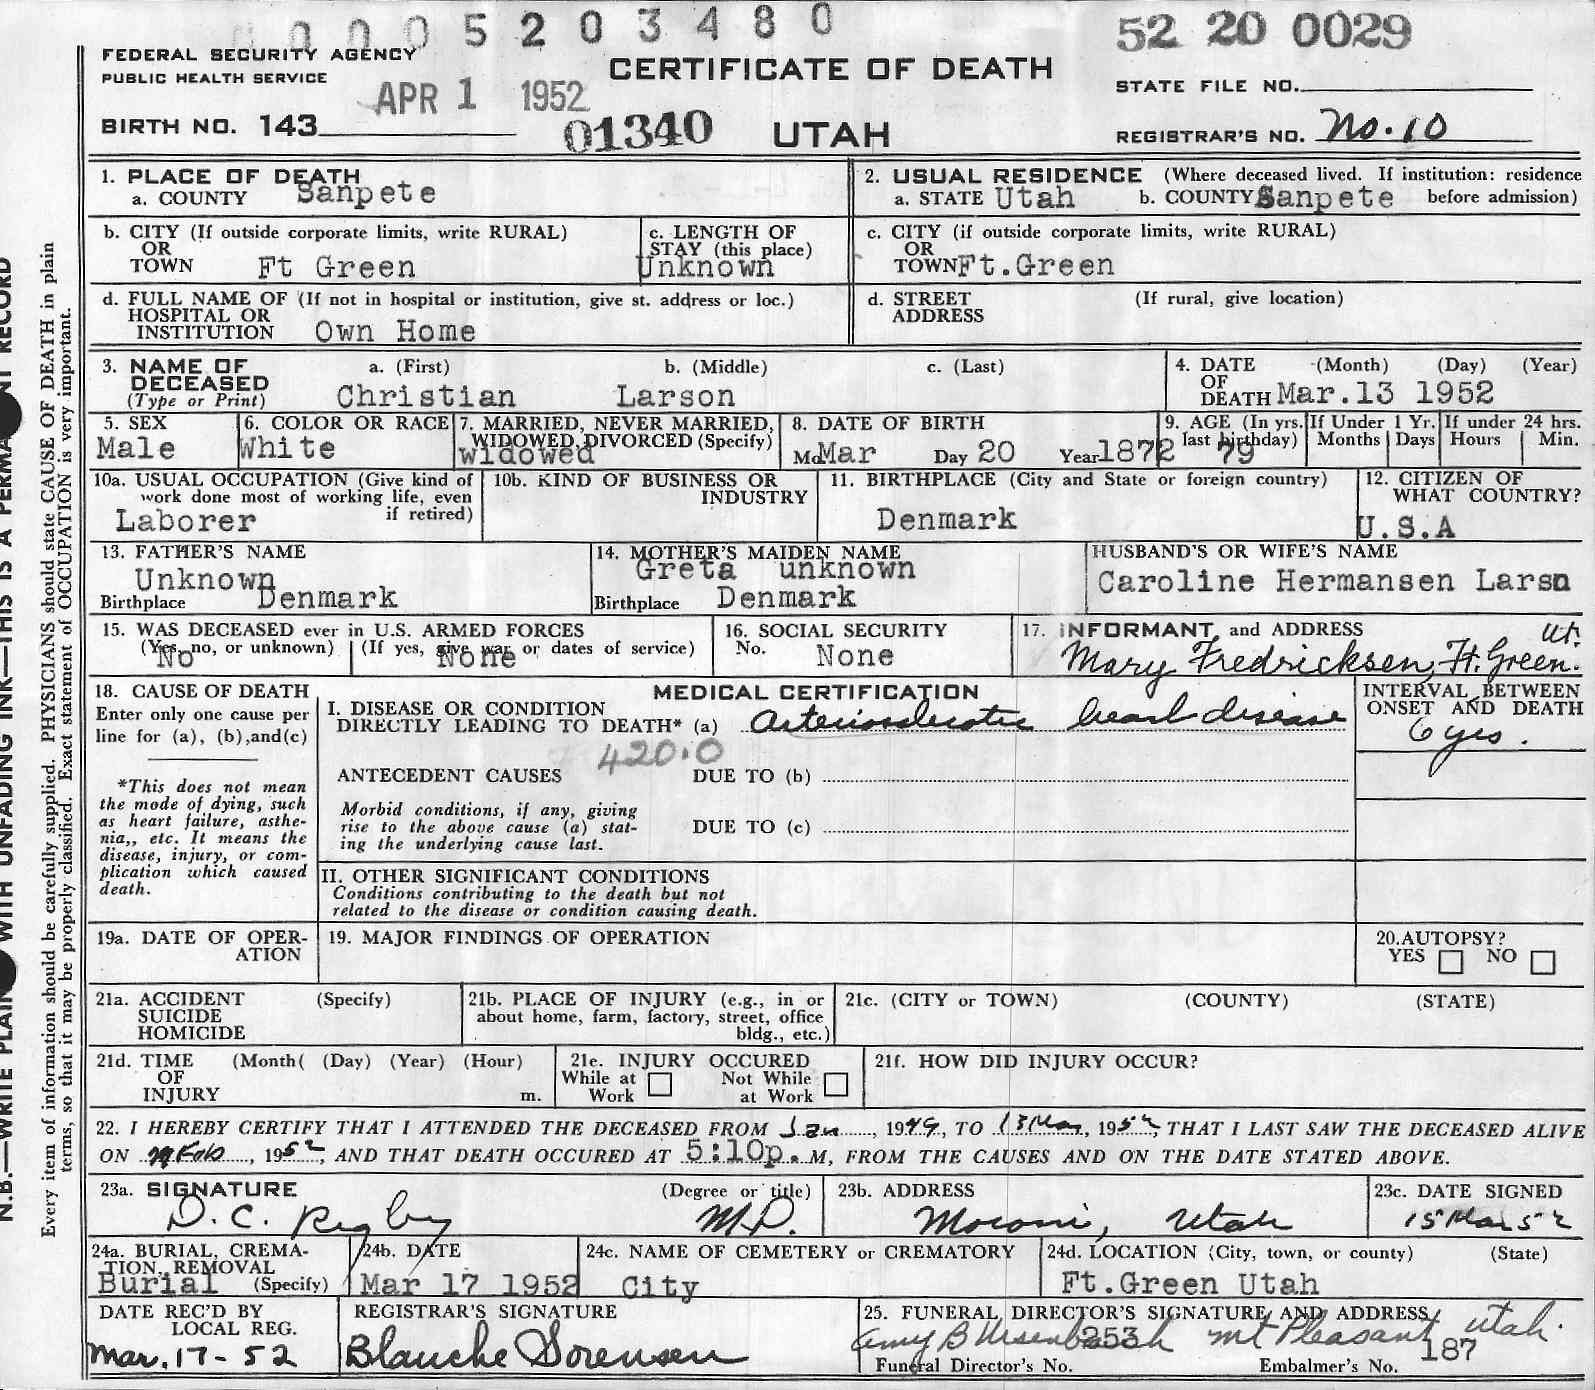 0005203480
52 20 0029
FEDERAL SECURITY AGENCY
PUBLIC HEALTH SERVICE
APR 1 1952
CERTIFICATE OF DEATH
STATE FILE NO.
BIRTH NO. 143
01340 UTAH
REGISTRAR'S NO. No. 10
1. PLACE OF DEATH
a. COUNTY Sanpete
2. USUAL RESIDENCE (Where deceased lived. If institution: residence
a. STATE Utah b. COUNTY Sanpete before admission)
b. CITY (If outside corporate limits, write RURAL)
OR
TOWN Ft Green
c. LENGTH OF
STAY (this place)
Unknown
c. CITY (if outside corporate limits, write RURAL)
OR
TOWN Ft.Green
d. FULL NAME OF (If not in hospital or institution, give st. address or loc.)
HOSPITAL OR
INSTITUTION Own Home
d. STREET (If rural, give location)
ADDRESS
3. NAME OF a. (First) b. (Middle) c. (Last)
DECEASED
(Type or Print) Christian Larson
4. DATE (Month) (Day) (Year)
OF
DEATH Mar.13 1952
5. SEX
Male
6. COLOR OR RACE
White
7. MARRIED, NEVER MARRIED,
WIDOWED, DIVORCED (Specify)
widowed
8. DATE OF BIRTH
Mo Mar Day 20 Year 1872
9. AGE (In yrs. last birthday) 79
If Under 1 Yr. Months Days
If under 24 hrs. Hours Min.
10a. USUAL OCCUPATION (Give kind of
work done most of working life, even
if retired)
Laborer
10b. KIND OF BUSINESS OR
INDUSTRY
11. BIRTHPLACE (City and State or foreign country)
Denmark
12. CITIZEN OF
WHAT COUNTRY?
U.S.A
13. FATHER'S NAME
Unknown
Birthplace Denmark
14. MOTHER'S MAIDEN NAME
Greta unknown
Birthplace Denmark
HUSBAND'S OR WIFE'S NAME
Caroline Hermansen Larsn
15. WAS DECEASED ever in U.S. ARMED FORCES
(Yes, no, or unknown) (If yes, give war or dates of service)
No None
16. SOCIAL SECURITY
No. None
17. INFORMANT and ADDRESS
Mary Fredricksen, Ft. Green. Ut.
18. CAUSE OF DEATH
Enter only one cause per
line for (a), (b), and(c)
*This does not mean
the mode of dying, such
as heart failure, asthe-
nia,, etc. It means the
disease, injury, or com-
plication which caused
death.
MEDICAL CERTIFICATION
I. DISEASE OR CONDITION
DIRECTLY LEADING TO DEATH* (a) Arteriosclerotic heart disease
INTERVAL BETWEEN
ONSET AND DEATH
6 yrs.
420.0
ANTECEDENT CAUSES DUE TO (b)
Morbid conditions, if any, giving
rise to the above cause (a) stat-
ing the underlying cause last.
DUE TO (c)
II. OTHER SIGNIFICANT CONDITIONS
Conditions contributing to the death but not
related to the disease or condition causing death.
19a. DATE OF OPER-
ATION
19. MAJOR FINDINGS OF OPERATION
20.AUTOPSY?
YES NO
21a. ACCIDENT (Specify)
SUICIDE
HOMICIDE
21b. PLACE OF INJURY (e.g., in or
about home, farm, factory, street, office
bldg., etc.)
21c. (CITY or TOWN) (COUNTY) (STATE)
21d. TIME (Month( (Day) (Year) (Hour)
OF
INJURY m.
21e. INJURY OCCURED
While at Work Not While at Work
21f. HOW DID INJURY OCCUR?
22. I HEREBY CERTIFY THAT I ATTENDED THE DECEASED FROM Jan, 1949, TO 13 Mar, 1952, THAT I LAST SAW THE DECEASED ALIVE
ON Feb, 1952, AND THAT DEATH OCCURED AT 5:10p.M, FROM THE CAUSES AND ON THE DATE STATED ABOVE.
23a. SIGNATURE (Degree or title)
D. C. Rigby M.D.
23b. ADDRESS
Moroni, Utah
23c. DATE SIGNED
15 Mar 52
24a. BURIAL, CREMA-
TION, REMOVAL
Burial (Specify)
24b. DATE
Mar 17 1952
24c. NAME OF CEMETERY or CREMATORY
City
24d. LOCATION (City, town, or county) (State)
Ft.Green Utah
DATE REC'D BY
LOCAL REG.
Mar. 17-52
REGISTRAR'S SIGNATURE
Blanche Sorensen
25. FUNERAL DIRECTOR'S SIGNATURE AND ADDRESS
Amy B Ursenbach Mt Pleasant Utah.
253 187
Funeral Director's No. Embalmer's No.
N.B.—WRITE PLAIN WITH UNFADING INK—THIS IS A PERMA NT RECORD
Every item of information should be carefully supplied. PHYSICIANS should state CAUSE OF DEATH in plain
terms, so that it may be properly classified. Exact statement of OCCUPATION is very important.